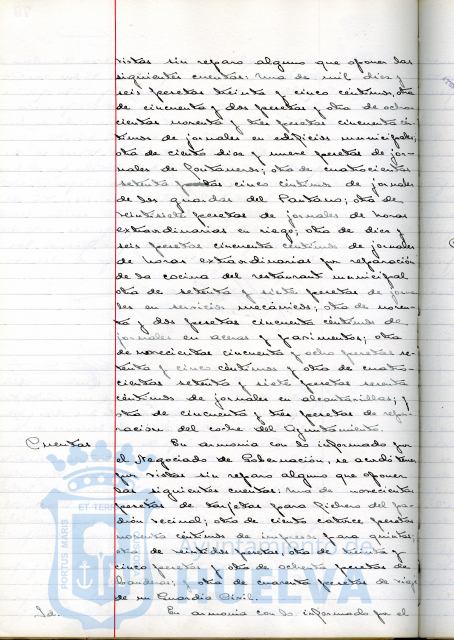 vistas sin reparo alguno que oponer las
siguientes cuentas: Una de mil diez y
seis pesetas treinta y cinco céntimos, otra
de cincuenta y dos pesetas y otra de ocho
cientas noventa y tres pesetas cincuenta cén
timos de jornales en edificios municipales;
otra de ciento diez y nueve pesetas de jor-
nales de fontaneros; otra de cuatrocientas
setenta pesetas cinco céntimos de jornales
de los guardas del Pantano; otra de
veintisiete pesetas de jornales de horas
extraordinarias en riego; otra de diez y
seis pesetas cincuenta céntimos de jornales
de horas extraordinarias por reparación
de la cocina del restaurant municipal
otra de setenta y siete pesetas de jorna
les en servicios mecánicos; otra de noven-
ta y dos pesetas cincuenta céntimos de
jornales en aceras y pavimentos; otra
de novecientas cincuenta y ocho pesetas se-
tenta y cinco céntimos y otra de cuatro-
cientas setenta y siete pesetas sesenta
céntimos de jornales en alcantarillas; y
otra de cincuenta y tres pesetas de repa-
ración del coche del Ayuntamiento.
Cuentas En armonia con lo informado por
el Negociado de Gobernación, se acordó tener
por vistas sin reparo alguno que oponer
las siguientes cuentas: Una de novecientas
pesetas de tarjetas para fichero del pa-
drón vecinal; otra de ciento catorce pesetas
noventa céntimos de impresos para quintas;
otra de veintidos pesetas; otra de treinta y
cinco pesetas y otra de ochenta pesetas de
banderas; y otra de cuarenta pesetas de viaje
de un Guardia Civil.
Id. En armonia con lo informado por el
ET TERRÆ
PORTUS MARIS
Ayuntamiento de
HUELVA